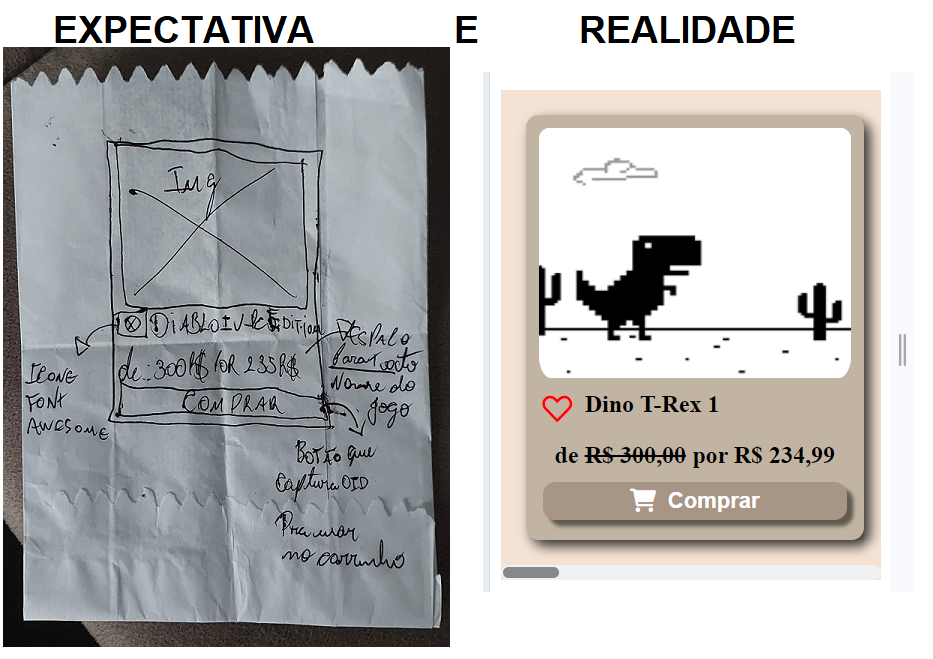 EXPECTATIVA E REALIDADE
Img
DIABLO IV PC EDITION
de: 300R$ POR 235R$
COMPRAR
ICONE
FONT
AWESOME
ESPAÇO
para texto
Nome do
jogo
BOTÃO que
captura O ID
Pra usar
no carrinho
Dino T-Rex 1
de R$ 300,00 por R$ 234,99
Comprar